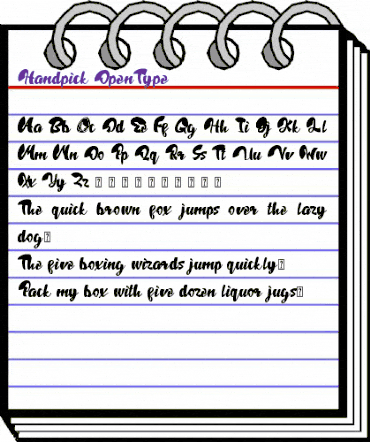 Handpick OpenType
Aa Bb Cc Dd Ee Ff Gg Hh Ii Jj Kk Ll
Mm Nn Oo Pp Qq Rr Ss Tt Uu Vv Ww
Xx Yy Zz
The quick brown fox jumps over the lazy
dog
The five boxing wizards jump quickly
Pack my box with five dozen liquor jugs